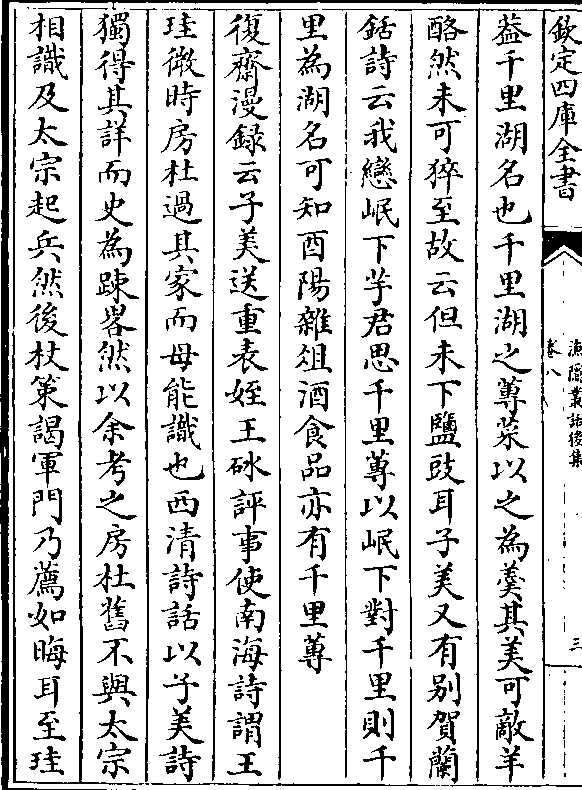 欽定四庫全書
漁隱叢話後集
卷八
三
葢千里湖名也千里湖之蓴菜以之為羹其美可敵羊
酪然未可猝至故云但未下鹽豉耳子美又有别賀蘭
銛詩云我戀岷下芋君思千里蓴以岷下對千里則千
里為湖名可知酉陽雜俎酒食品亦有千里蓴
復齋漫錄云子美送重表姪王砅評事使南海詩謂王
珪微時房杜過其家而母能識也西清詩話以子美詩
獨得其詳而史為踈畧然以余考之房杜舊不與太宗
相識及太宗起兵然後杖策謁軍門乃薦如晦耳至珪